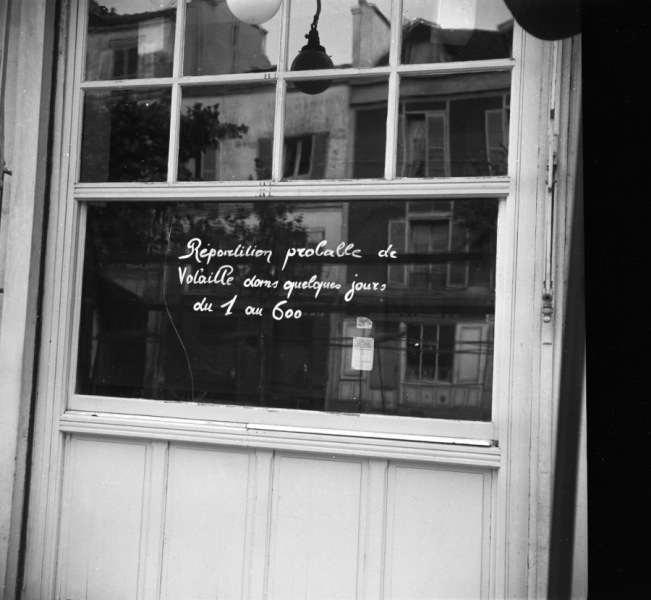 Répartition probable de
Volaille dans quelques jours
du 1 au 600